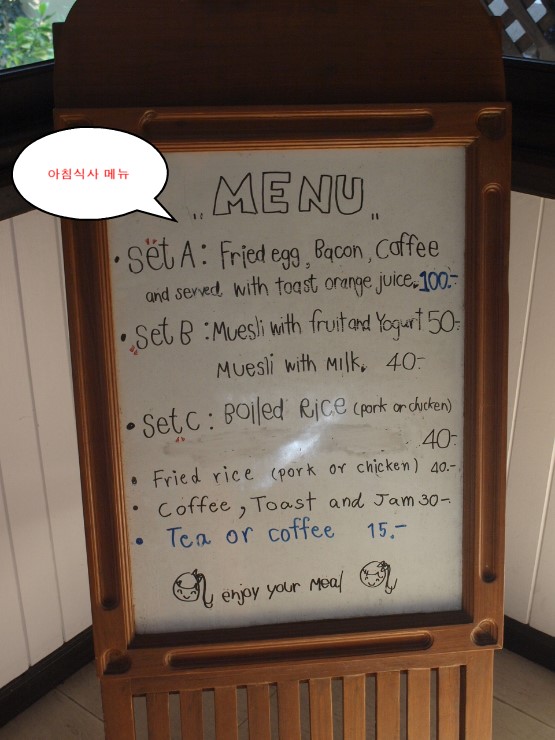 아침식사 메뉴
"MENU"
• Set A : Fried egg, Bacon, Coffee
and served with toast orange juice. 100.-
• Set B : Muesli with fruit and Yogurt 50.-
Muesli with Milk. 40.-
• Set C : Boiled Rice (pork or chicken)
40.-
• Fried rice (pork or chicken) 40.-
• Coffee, Toast and Jam 30-
• Tea or coffee 15.-
enjoy your Meal